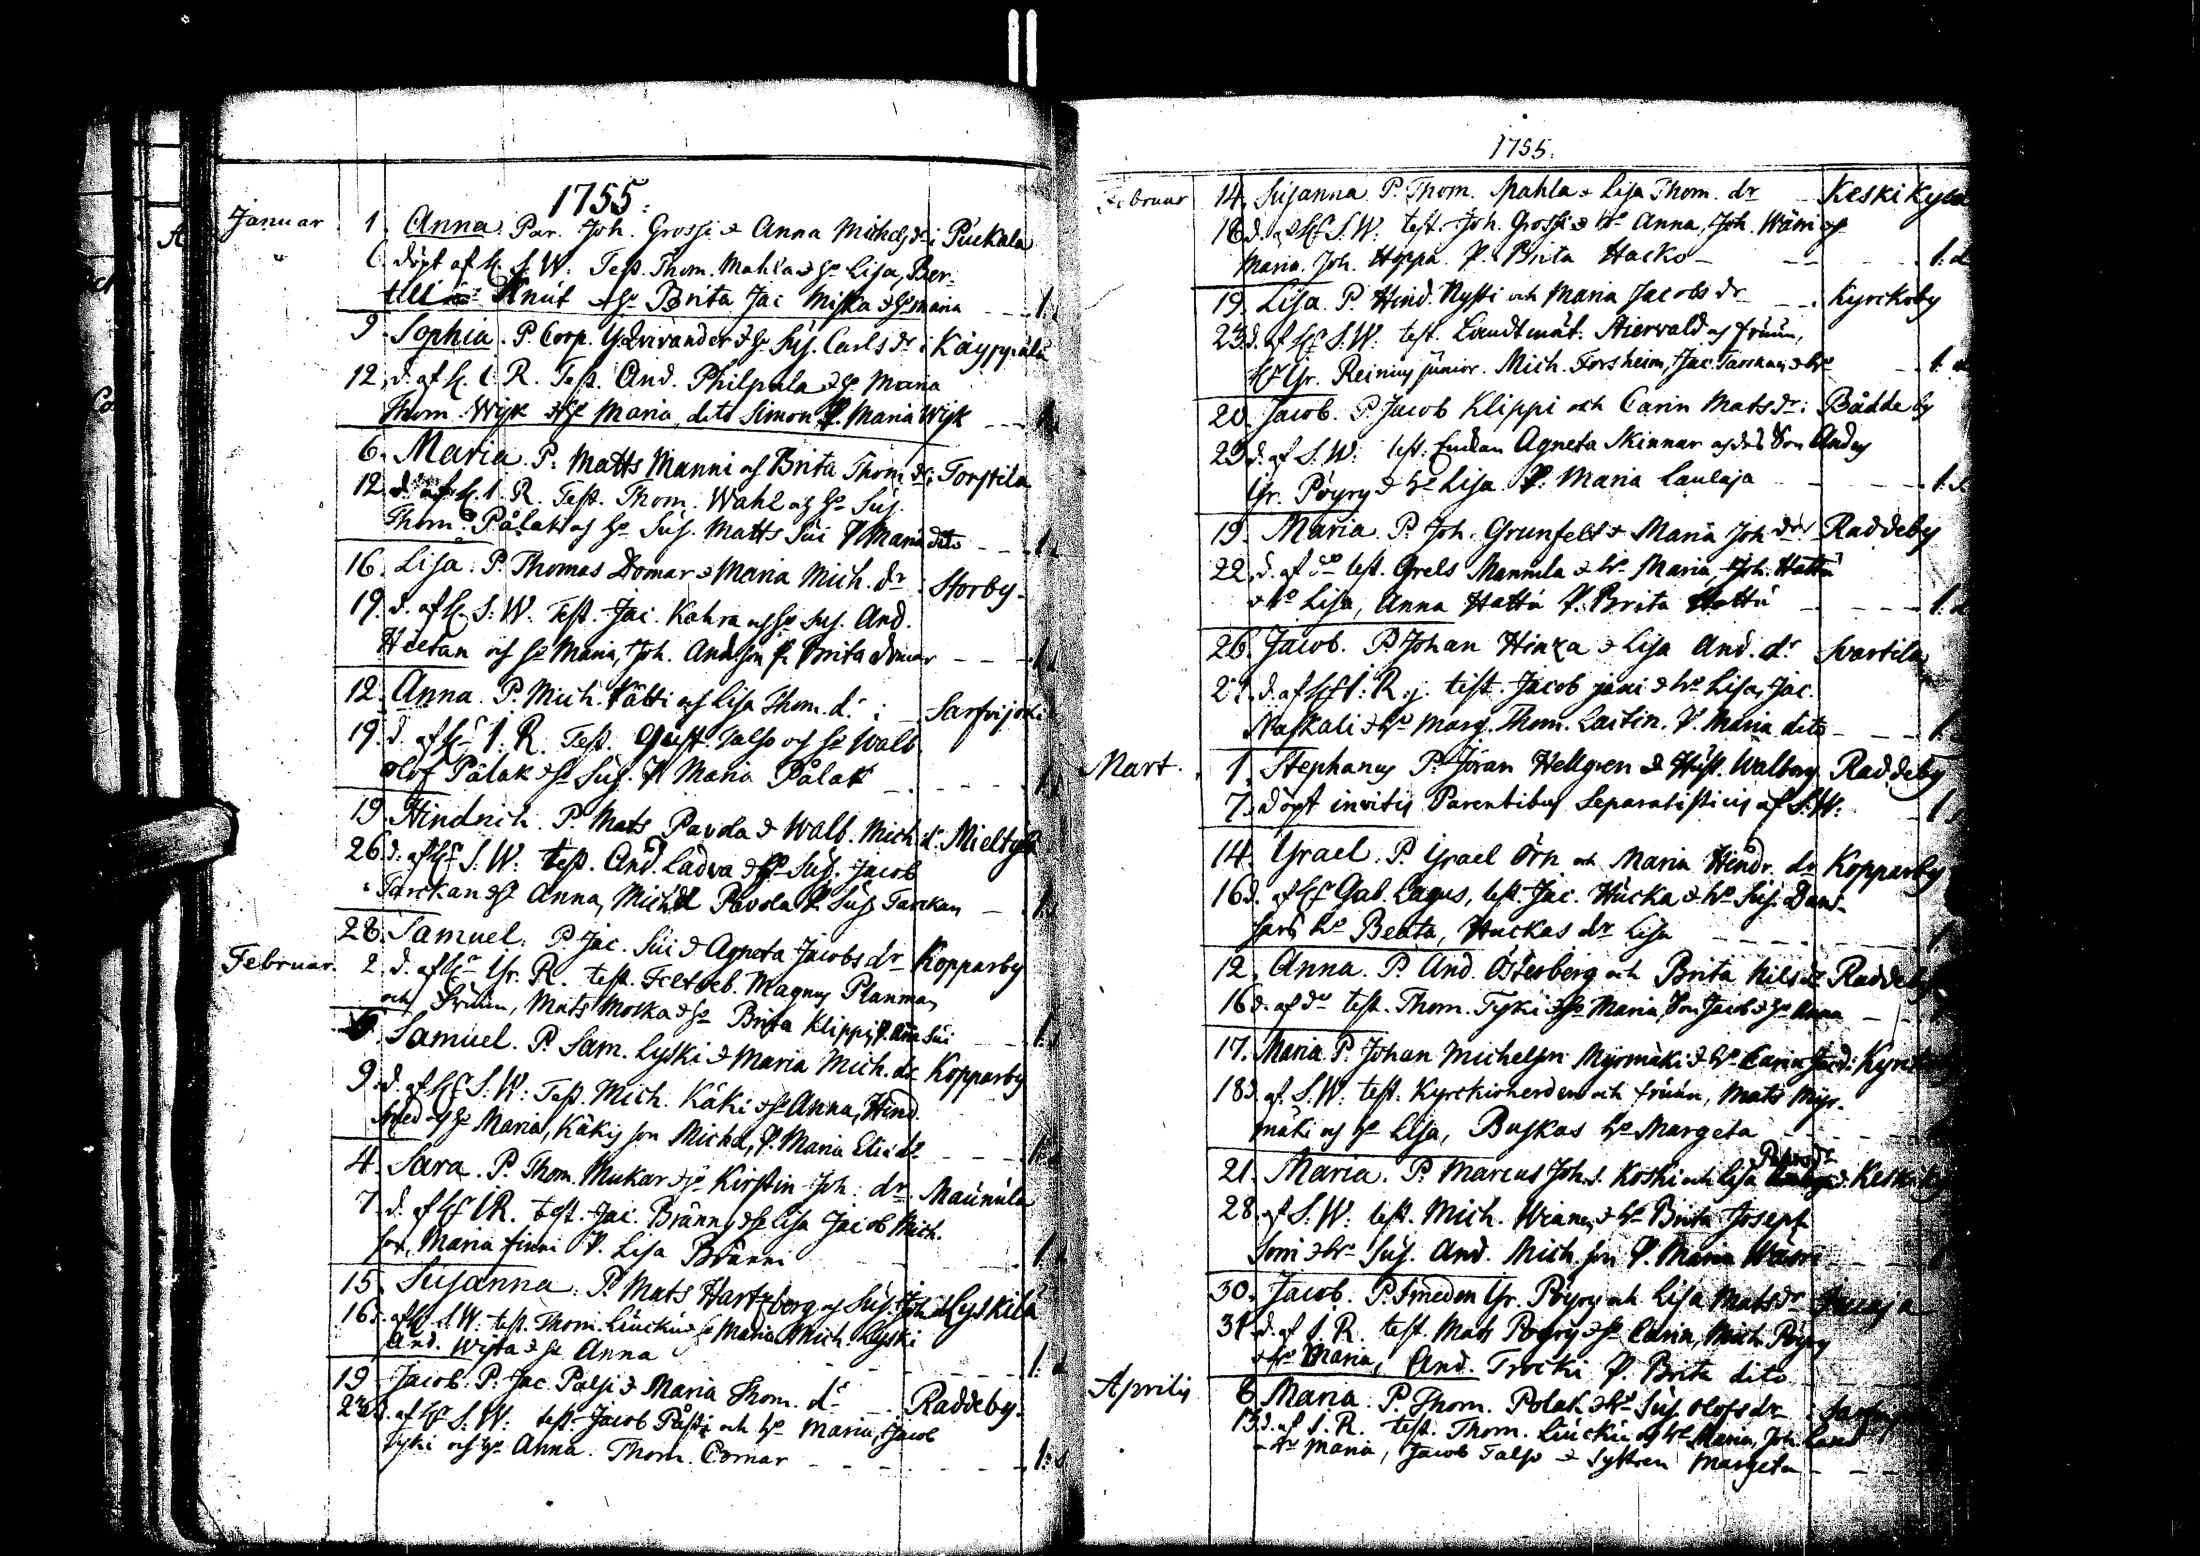 1755.
Januar 1. Anna. Par. Joh. Grossi & Anna Michelsdr i Puckala
6. döpt af H. S. W. Test. Thom. Mahla & ho Lisa, Ber-
till Knut & ho Brita Jac Miska & ho Maria
9 Sophia. P. Corp. & Sus. Carls dr i Käyppälä
12. d. af H. I. R. Test. And. Philpula & ho Maria
Thom. Wijk & ho Maria, dito Simon P. Maria Wijk
6. Maria. P. Matts Manni och Brita Thom dr: Torstila
12. d. af H. I. R. Test. Thom. Wahl och ho Sus.
Thom. Pålak och ho Sus. Matts Sui P. Maria dito
16. Lisa. P. Thomas Domar & Maria Mich. dr Storby.
19. d. af H. S. W. Test. Jac. Kahra och ho Sus. And.
och ho Maria, Joh. And. son P. Brita Domar
12. Anna. P. Mich. Pätti och Lisa Thom. dr i Sarfvijoki
19. d. af Hr I. R. Test. Gust. Talso och ho Walb
Olof Pålak & ho Sus. P. Maria Pålak
19. Hindrich. P. Mats Pavola & Walb. Mich. dr Mieltylä
26. d. af Hr S. W. test. And. Ladva & ho Sus. Jacob
Tarckan & ho Anna, Michel Pavola P. Sus. Tarckan
28. Samuel. P. Jac. Sui & Agneta Jacobs dr Kopparby
Februar. 2. d. af Hr Gr. R. test. Feltveb. Magnus Planman
och Fruun, Mats Moska & ho Brita Klippi, P. Anna Sui
Samuel. P. Sam. Lyski & Maria Mich. dr Kopparby
9. d. af Hr S. W. Test. Mich. Käki & ho Anna, Hind.
Smed och ho Maria, Käkis son Michel, P. Maria Elia dr
4. Sara. P. Thom. Mukar & ho Kirstin Joh. dr Maunula
7. d. af Hr I R. test. Jac. Bränni & ho Lisa Jacob Mich.
son, Maria Finni P. Lisa Bränni
15. Susanna. P. Mats Hartzberg och Sus. Joh. dr Lyskilä
16. af Hr S W. test. Thom. Liuckiu & ho Maria Mich. Lyski
And. Wijsta & ho Anna
19 Jacob. P. Jac. Palsi & Maria Thom. dr Raddeby.
23 d. af Hr S. W. test. Jacob Påssi och ho Maria, Jacob
Tyki och ho Anna. Thom. Comar
1755.
Februar 14. Susanna P. Thom. Mahla & Lisa Thom. dr Keski Kylä
16 d. af Hr S. W. test. Joh. Grossi & ho Anna, Joh. Wäini &
Maria. Joh. Hyppä. P. Brita Hacko
19. Lisa. P. Hind. Nysti och Maria Jacobs dr Kyrckoby
23 d. af Hr S. W. test. Landtmät. Stierwald och fruun,
Hr Gr. Reinius junior. Mich. Forsheim, Jac. Tarckan & ho
20. Jacob. P. Jacob Klippi och Carin Mats dr i Bådde by
23 d. af S. W. test. Enckan Agneta Skinnar och dess Son Anders
Gr. Pöyry & ho Lisa P. Maria Laulaja
19. Maria. P. Joh. Grunfelt & Maria Joh dr Raddeby
22. d. af do test. Grels Mannula & ho Maria, Joh. Hattu
& ho Lisa, Anna Hattu P. Brita Hattu
26. Jacob. P. Johan Hinza & Lisa And. dr Svartila
27. d. af Hr I. R. test. Jacob Jani & ho Lisa, Jac.
Naskali & ho Marg. Thom. Lastin. P. Maria dito
Mart. 1. Stephanus P. Jöran Hellgren & Hust. Walborg Raddeby
7. döpt invitis Parentibus Separatisticis af S. W.
14. Israel. P. Israel Örn och Maria Hindr. dr Kopparby
16 d. af Hr Gab. Lagus, test. Jac. Hucka & ho Sus. Dans-
kars ho Beata, Huckas dr Lisa
12. Anna. P. And. Österberg och Brita Nils dr Raddeby
16 d. af do test. Thom. Tyki & ho Maria, Son Jacob & ho Anna
17. Maria P. Johan Michelson Myrmäki & ho Carin
18 d. af. S. W. test. Kyrckioherden och fruun, Mats Myr-
mäki och ho Lisa, Buskas ho Margeta
21. Maria. P. Marcus Joh. s. Koski och Lisa Keski
28. af S. W. test. Mich. & ho Brita Josep
Soni & ho Sus. And. Mich. son P. Maria
30. Jacob. P. Smeden Gr. Pöyry och Lisa Mats dr
31 d. af I. R. test. Mats Pöyry & ho Carin, Mich. Pöyry
& ho Maria, And. Trocki P. Brita dito
Aprilis 6. Maria. P. Thom. Pålak & ho Sus. Olofs dr
13 d. af I. R. test. Thom. Liuckiu & ho Maria, Joh.
& ho Maria, Jacob Talso & Systren Margeta